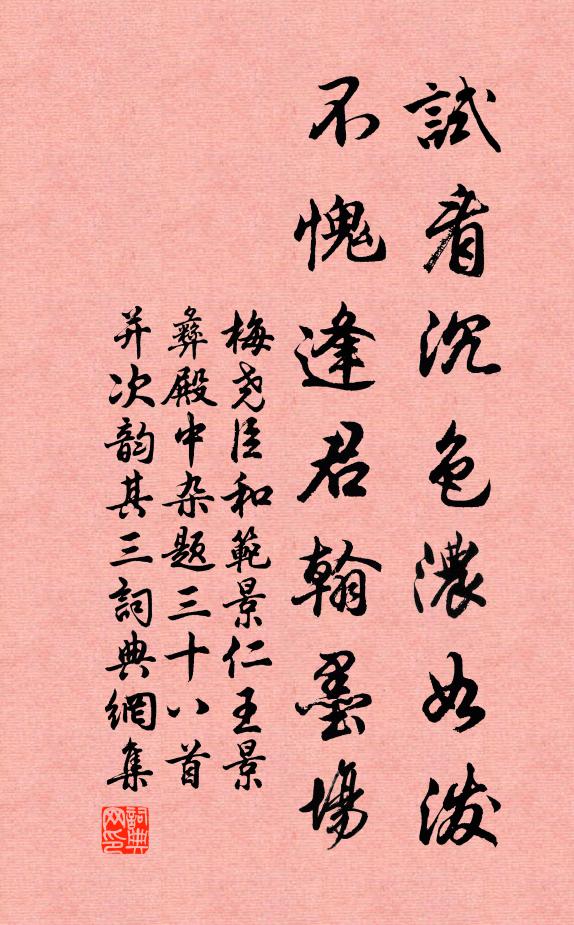 試看沉色濃如潑
不愧逢君翰墨場
梅尧臣和範景仁王景
彝殿中杂题三十八首
并次韵其三詞典網集
詞典网印